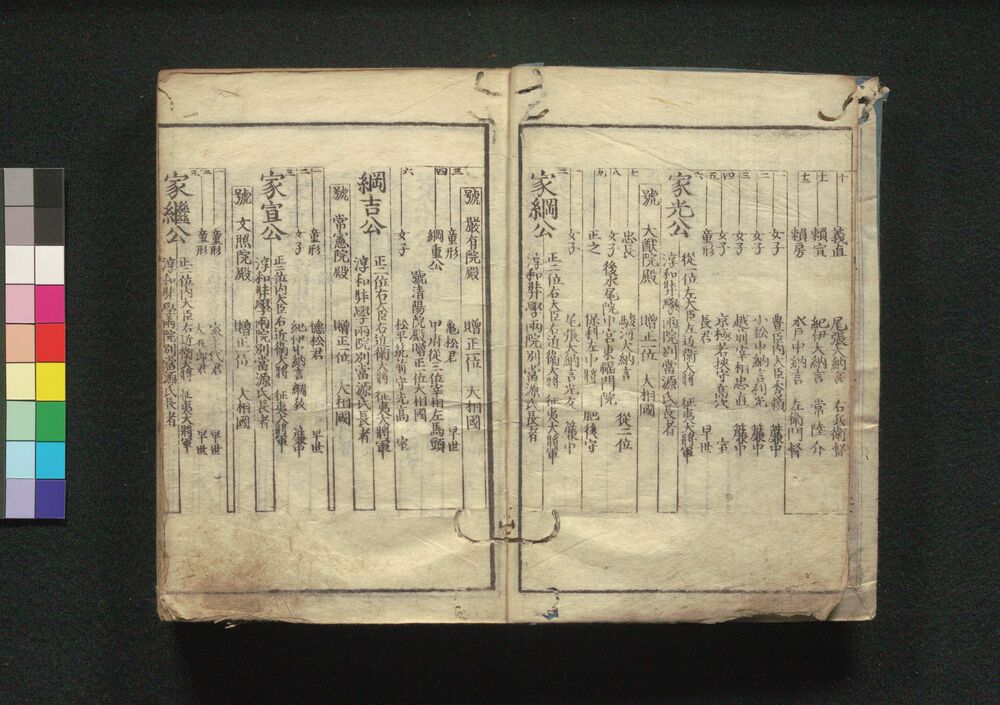 十 義直 尾張大納言 右兵衛督
十一 頼宣 紀伊大納言 常陸介
十二 頼房 水戸中納言 左衛門督
一 女子 豊臣内大臣秀頼 簾中
二 女子 小松中納言利光 簾中
三 女子 越前宰相忠直 簾中
四 女子 京極若狭守忠次 室
五 童形 長君 早世
六 家光公 從一位左大臣左近衛大將 征夷大將軍
淳和奬學兩院別當源氏長者
號 大猷院殿 贈正一位 大相國
七 忠長 駿河大納言 從二位
八 女子 後水尾院中宮東福門院
九 正之 保科左中將 肥後守
一 女子 尾張大納言光友 簾中
二 家綱公 正二位右大臣右近衛大將 征夷大將軍
淳和奬學兩院別當源氏長者
號 嚴有院殿 贈正一位 大相國
三 童形 亀松君 早世
四 綱重公 甲府從三位宰相左馬頭
號清陽院殿贈正一位大相國
六 女子 松平 室
綱吉公 正二位右大臣右近衛大將 征夷大將軍
淳和奬學兩院別當源氏長者
號 常憲院殿 贈正一位 大相國
一 童形 德松君 早世
二 女子 紀伊中納言綱教 簾中
三 家宣公 正二位内大臣右近衛大將 征夷大將軍
淳和奬學兩院別當源氏長者
號 文照院殿 贈正一位 大相國
一 童形 家千代君 早世
二 童形 大五郎君 早世
三 家繼公 正二位内大臣右近衛大將 征夷大將軍
淳和奬學兩院別當源氏長者